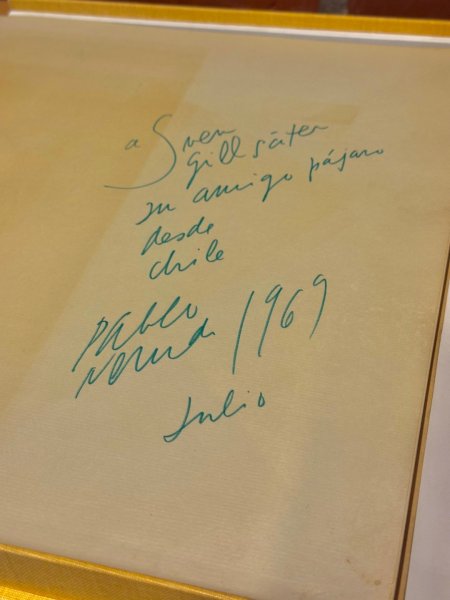 a Sven
Gillsäter
su amigo pájaro
desde
Chile
Pablo
Neruda 1969
Julio